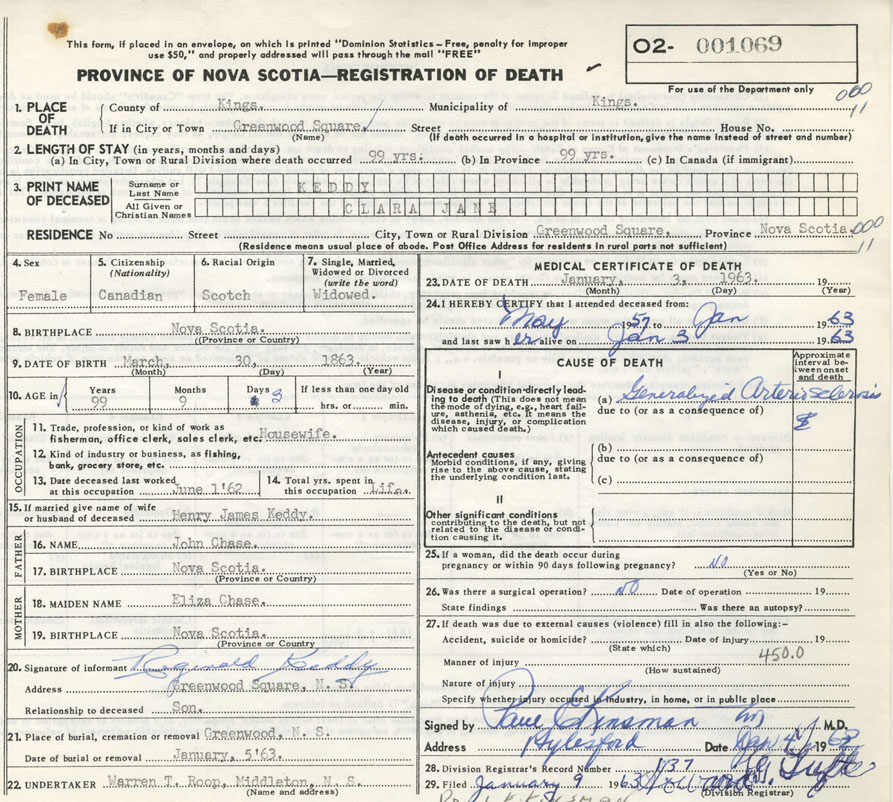 This form, if placed in an envelope, on which is printed "Dominion Statistics – Free, penalty for improper
use $50," and properly addressed will pass through the mail "FREE"
O2- 001069
PROVINCE OF NOVA SCOTIA—REGISTRATION OF DEATH
For use of the Department only
1. PLACE OF DEATH
County of Kings. Municipality of Kings.
000
11
If in City or Town Greenwood Square. Street House No.
(Name) (If death occurred in a hospital or institution, give the name instead of street and number)
2. LENGTH OF STAY (in years, months and days)
(a) In City, Town or Rural Division where death occurred 99 yrs. (b) In Province 99 yrs. (c) In Canada (if immigrant)
3. PRINT NAME OF DECEASED
Surname or Last Name KEDDY
All Given or Christian Names CLARA JANE
RESIDENCE No Street City, Town or Rural Division Greenwood Square. Province Nova Scotia.
000
11
(Residence means usual place of abode. Post Office Address for residents in rural parts not sufficient)
4. Sex
Female
5. Citizenship
(Nationality)
Canadian
6. Racial Origin
Scotch
7. Single, Married, Widowed or Divorced
(write the word)
Widowed.
8. BIRTHPLACE Nova Scotia.
(Province or Country)
9. DATE OF BIRTH March, 30, 1863.
(Month) (Day) (Year)
10. AGE in
Years Months Days If less than one day old
99 9 3 hrs. or min.
OCCUPATION
11. Trade, profession, or kind of work as
fisherman, office clerk, sales clerk, etc. Housewife.
12. Kind of industry or business, as fishing,
bank, grocery store, etc.
13. Date deceased last worked
at this occupation June 1'62
14. Total yrs. spent in
this occupation Life.
15. If married give name of wife
or husband of deceased Henry James Keddy.
FATHER
16. NAME John Chase.
17. BIRTHPLACE Nova Scotia.
(Province or Country)
MOTHER
18. MAIDEN NAME Eliza Chase.
19. BIRTHPLACE Nova Scotia.
(Province or Country)
20. Signature of informant Reginald Keddy
Address Greenwood Square, N. S.
Relationship to deceased Son.
21. Place of burial, cremation or removal Greenwood, N. S.
Date of burial or removal January, 5'63.
22. UNDERTAKER Warren T. Roop, Middleton, N. S.
(Name and address)
MEDICAL CERTIFICATE OF DEATH
23. DATE OF DEATH January, 3, 1963. 19
(Month) (Day) (Year)
24. I HEREBY CERTIFY that I attended deceased from:
May 1957 to Jan 1963
and last saw h er alive on Jan 3 1963
CAUSE OF DEATH
Approximate interval between onset and death
I
Disease or condition directly leading to death (This does not mean the mode of dying, e.g., heart failure, asthenia, etc. It means the disease, injury, or complication which caused death.)
(a) Generalized Arteriosclerosis
due to (or as a consequence of)
Antecedent causes
Morbid conditions, if any, giving rise to the above cause, stating the underlying condition last.
(b)
due to (or as a consequence of)
(c)
II
Other significant conditions
contributing to the death, but not related to the disease or condition causing it.
25. If a woman, did the death occur during
pregnancy or within 90 days following pregnancy? NO
(Yes or No)
26. Was there a surgical operation? NO Date of operation 19
State findings Was there an autopsy?
27. If death was due to external causes (violence) fill in also the following:–
Accident, suicide or homicide? Date of injury 19
(State which)
450.0
Manner of injury
(How sustained)
Nature of injury
Specify whether injury occurred in industry, in home, or in public place
Signed by Paul E Kinsman M.D.
Address Aylesford Date Jan 4 1963
28. Division Registrar's Record Number 137
29. Filed January 9 1963
(Division Registrar)